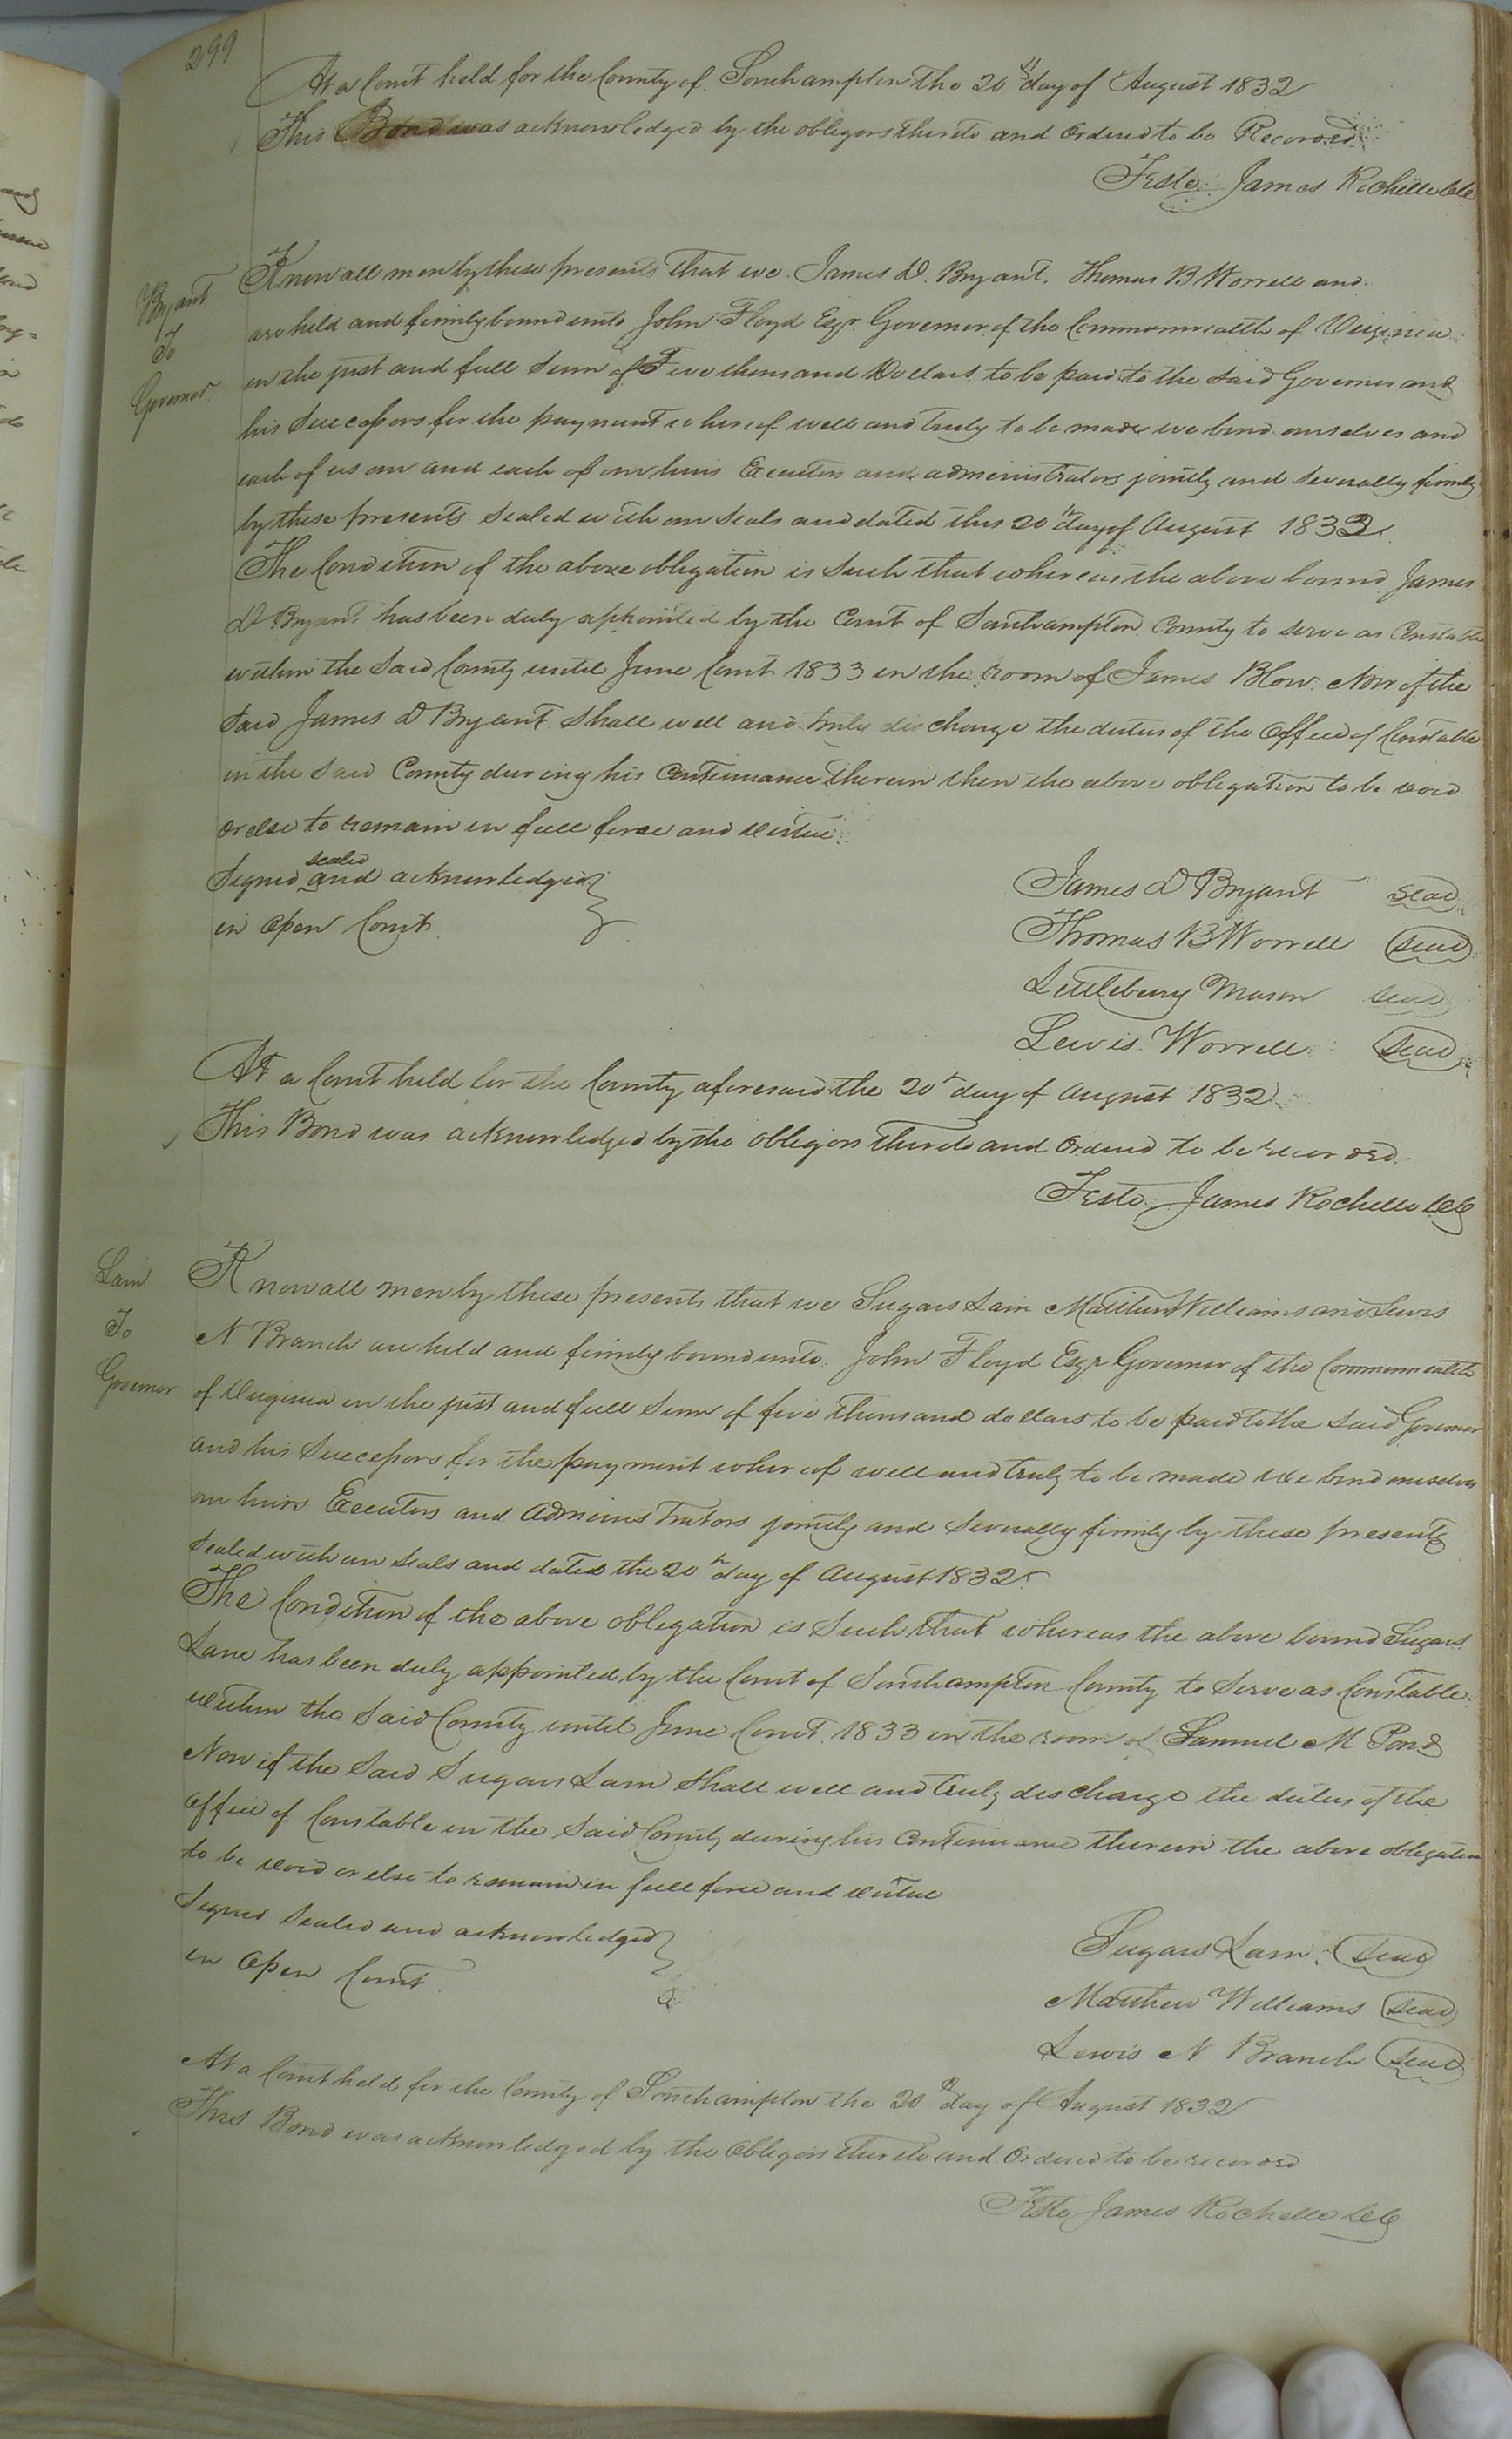 299
At a Court held for the County of Southampton the 20th day of August 1832
This Bond was acknowledged by the obligors thereto and Ordered to be Recorded
Teste James Rochelle CC
Bryant
To
Governor
Know all men by these presents that we James D. Bryant, Thomas B Worrell and
are held and firmly bound unto John Floyd Esqr. Governor of the Commonwealth of Virginia
in the just and full sum of Five thousand Dollars to be paid to the said Governor and
his Successors for the payment whereof well and truly to be made we bind ourselves and
each of us our and each of our heirs Executors and administrators jointly and severally firmly
by these presents Sealed with our Seals and dated this 20th day of August 1832.
The Condition of the above obligation is such that whereas the above bound James
D Bryant has been duly appointed by the Court of Southampton County to serve as Constable
within the said County until June Court 1833 in the room of James Blow. Now if the
said James D Bryant shall well and truly discharge the duties of the Office of Constable
in the said County during his Continuance therein then the above obligation to be void
or else to remain in full force and virtue.
Signed sealed and acknowledged
in Open Court
James D Bryant seal
Thomas B Worrell seal
Littlebury Mason seal
Lewis Worrell seal
At a Court held for the County aforesaid the 20th day of August 1832
This Bond was acknowledged by the obligors thereto and Ordered to be recorded.
Teste James Rochelle CC
Lain
To
Governor
Know all men by these presents that we Sugars Lain Matthew Williams and Lewis
N Branch are held and firmly bound unto John Floyd Esqr Governor of the Commonwealth
of Virginia in the just and full sum of five thousand dollars to be paid to the said Governor
and his Successors for the payment whereof well and truly to be made we bind ourselves
our heirs Executors and Administrators jointly and severally firmly by these presents
Sealed with our Seals and dated the 20th day of August 1832.
The Condition of the above obligation is such that whereas the above bound Sugars
Lane has been duly appointed by the Court of Southampton County to Serve as Constable
within the said County until June Court 1833 in the room of Samuel M Pond
Now if the said Sugars Lain shall well and truly discharge the duties of the
Office of Constable in the said County during his Continuance therein the above obligation
to be void or else to remain in full force and virtue
Signed Sealed and acknowledged
in Open Court
Sugars Lain seal
Matthew Williams seal
Lewis N Branch seal
At a Court held for the County of Southampton the 20th day of August 1832
This Bond was acknowledged by the Obligors thereto and Ordered to be recorded
Teste James Rochelle CC